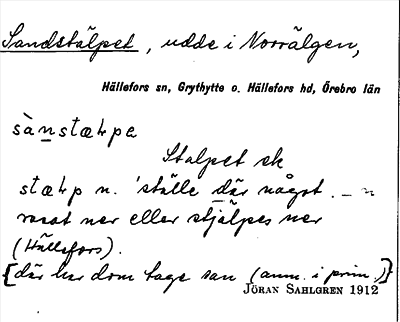 Sandstälpet, udde i Norrälgen,
Hällefors sn, Grythytte o. Hällefors hd, Örebro län
sànstæɫpa
Stalpet sk
stæɫp n. 'ställe där något
rasat ner eller stjälpes ner
(Hällefors).
[där har dom tage san (anm. i prim.)]
JÖRAN SAHLGREN 1912